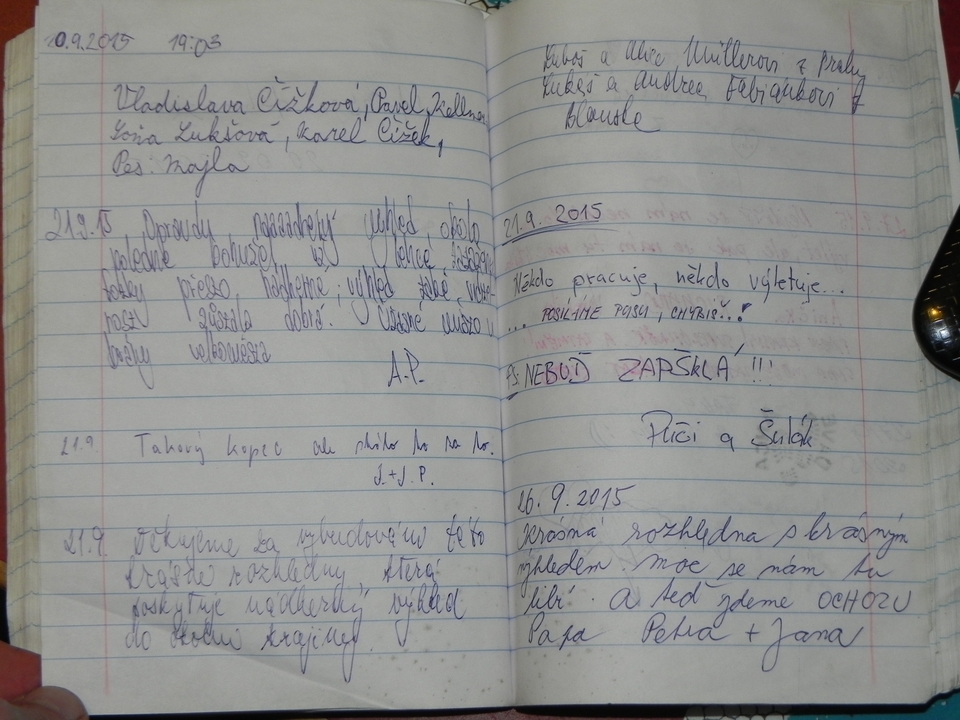 20.9.2015 19:03
Vladislava Čížková, Pavel Kellner
Soňa Lukšová, Karel Čížek,
Pes: Majla
21.9.15 Opravdu výhled, okolo
poledne bohužel už lehce
přesto, nádherné, výhled také,
dobrá.
A.P.
21.9. Takový kopec ale stálo to za to.
J.+J.P.
21.9. Děkujeme za vybudování této
krásné rozhledny, která
poskytuje nádherný výhled
do okolní krajiny.
Luboš a Müllerovi z Prahy
Lukáš a Andrea Fabiánkovi z
Blanska
21.9. 2015
Někdo pracuje, někdo výletuje...
... POSÍLÁME PUSU, CHYBÍŠ..!
PS: NEBUĎ ZAPŠKLÁ !!!
a Šulák
26.9.2015
Krásná rozhledna s krásným
výhledem. moc se nám tu
líbí. A teď jdeme OCHOZU
Papa Petra + Jana